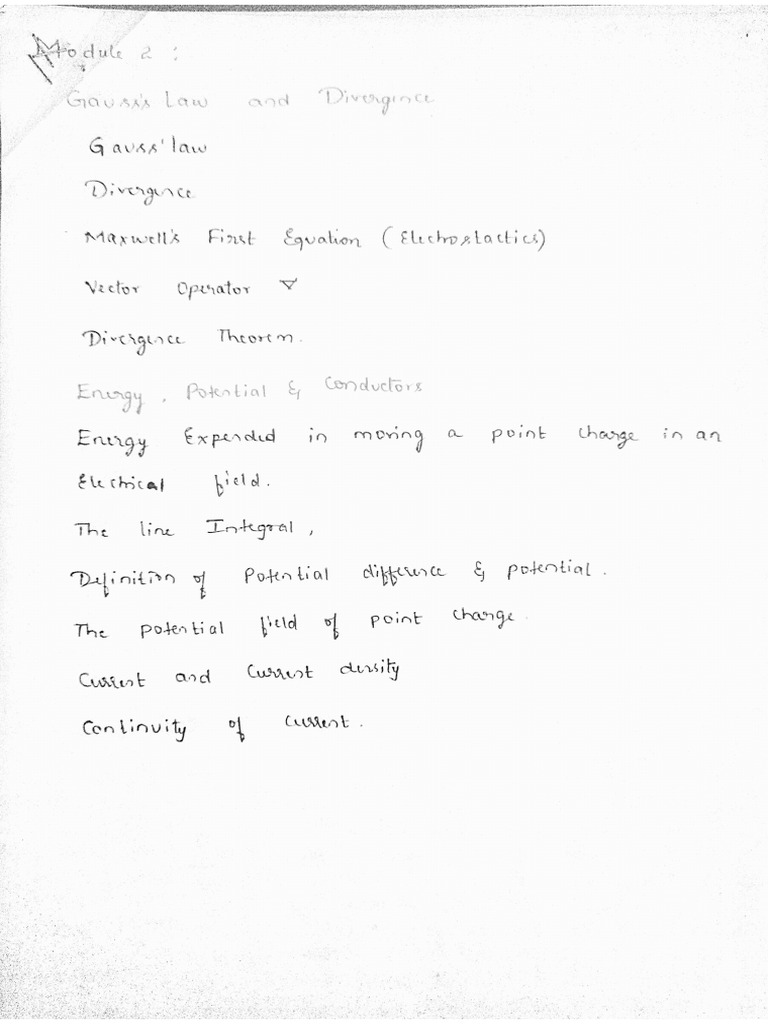 Module 2 :
Gauss's Law and Divergence
Gauss' law
Divergence
Maxwell's First Equation (Electrostactics)
Vector Operator ∇
Divergence Theorem.
Energy, Potential & Conductors
Energy Expended in moving a point charge in an
Electrical field.
The line Integral,
Definition of Potential difference & potential.
The potential field of point charge.
Current and Current density
Continuity of Current.